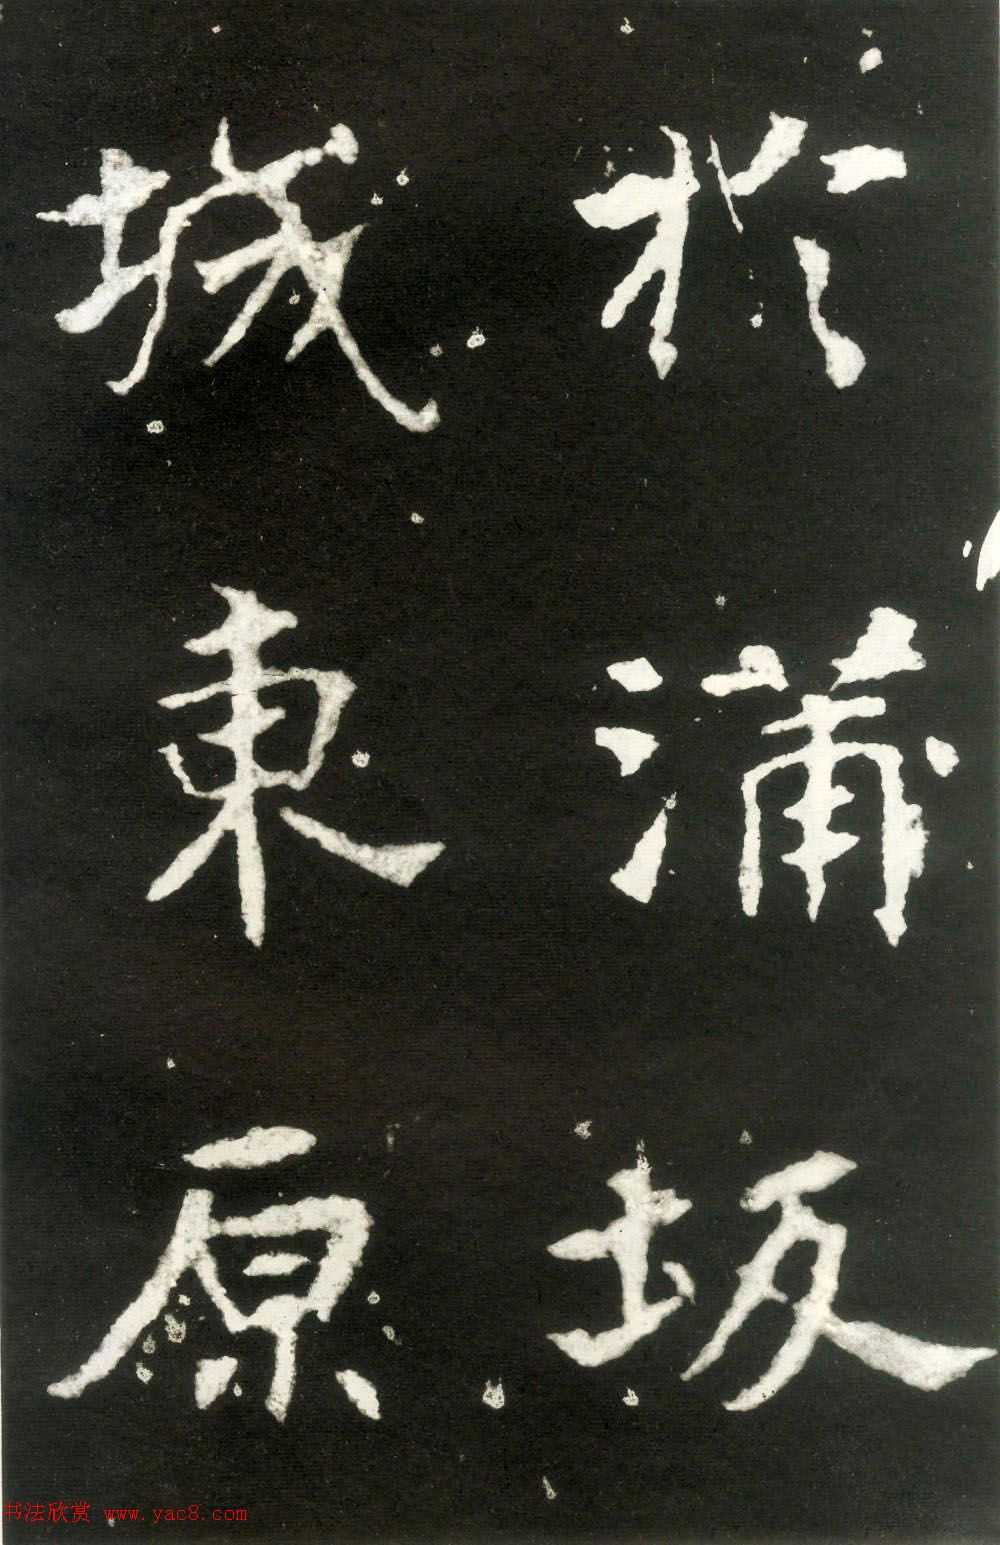 於蒲坂
城東原
书法欣赏 www.yac8.com